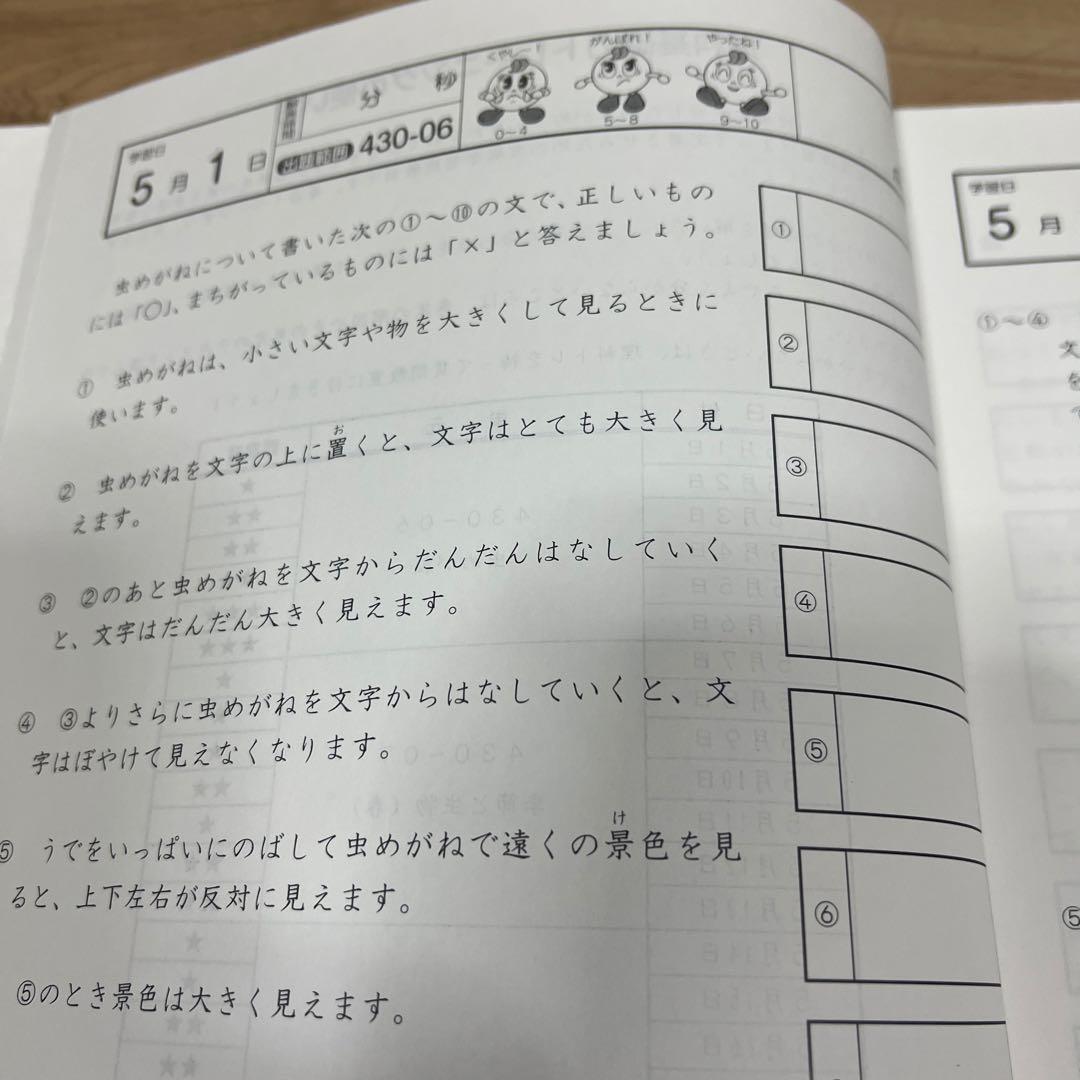 学習日
5月1日
分 秒
出題範囲 430-06
くやし〜！
がんばれ！
やったね！
0〜4
5〜8
9〜10
虫めがねについて書いた次の①〜⑩の文で、正しいもの
には「○」、まちがっているものには「×」と答えましょう。
① 虫めがねは、小さい文字や物を大きくして見るときに
使います。
② 虫めがねを文字の上に置くと、文字はとても大きく見
お
えます。
③ ②のあと虫めがねを文字からだんだんはなしていく
と、文字はだんだん大きく見えます。
④ ③よりさらに虫めがねを文字からはなしていくと、文
字はぼやけて見えなくなります。
⑤ うでをいっぱいにのばして虫めがねで遠くの景色を見
け
ると、上下左右が反対に見えます。
⑤のとき景色は大きく見えます。
①
②
③
④
⑤
⑥
学習日
5月
①〜④
文
を
⑤